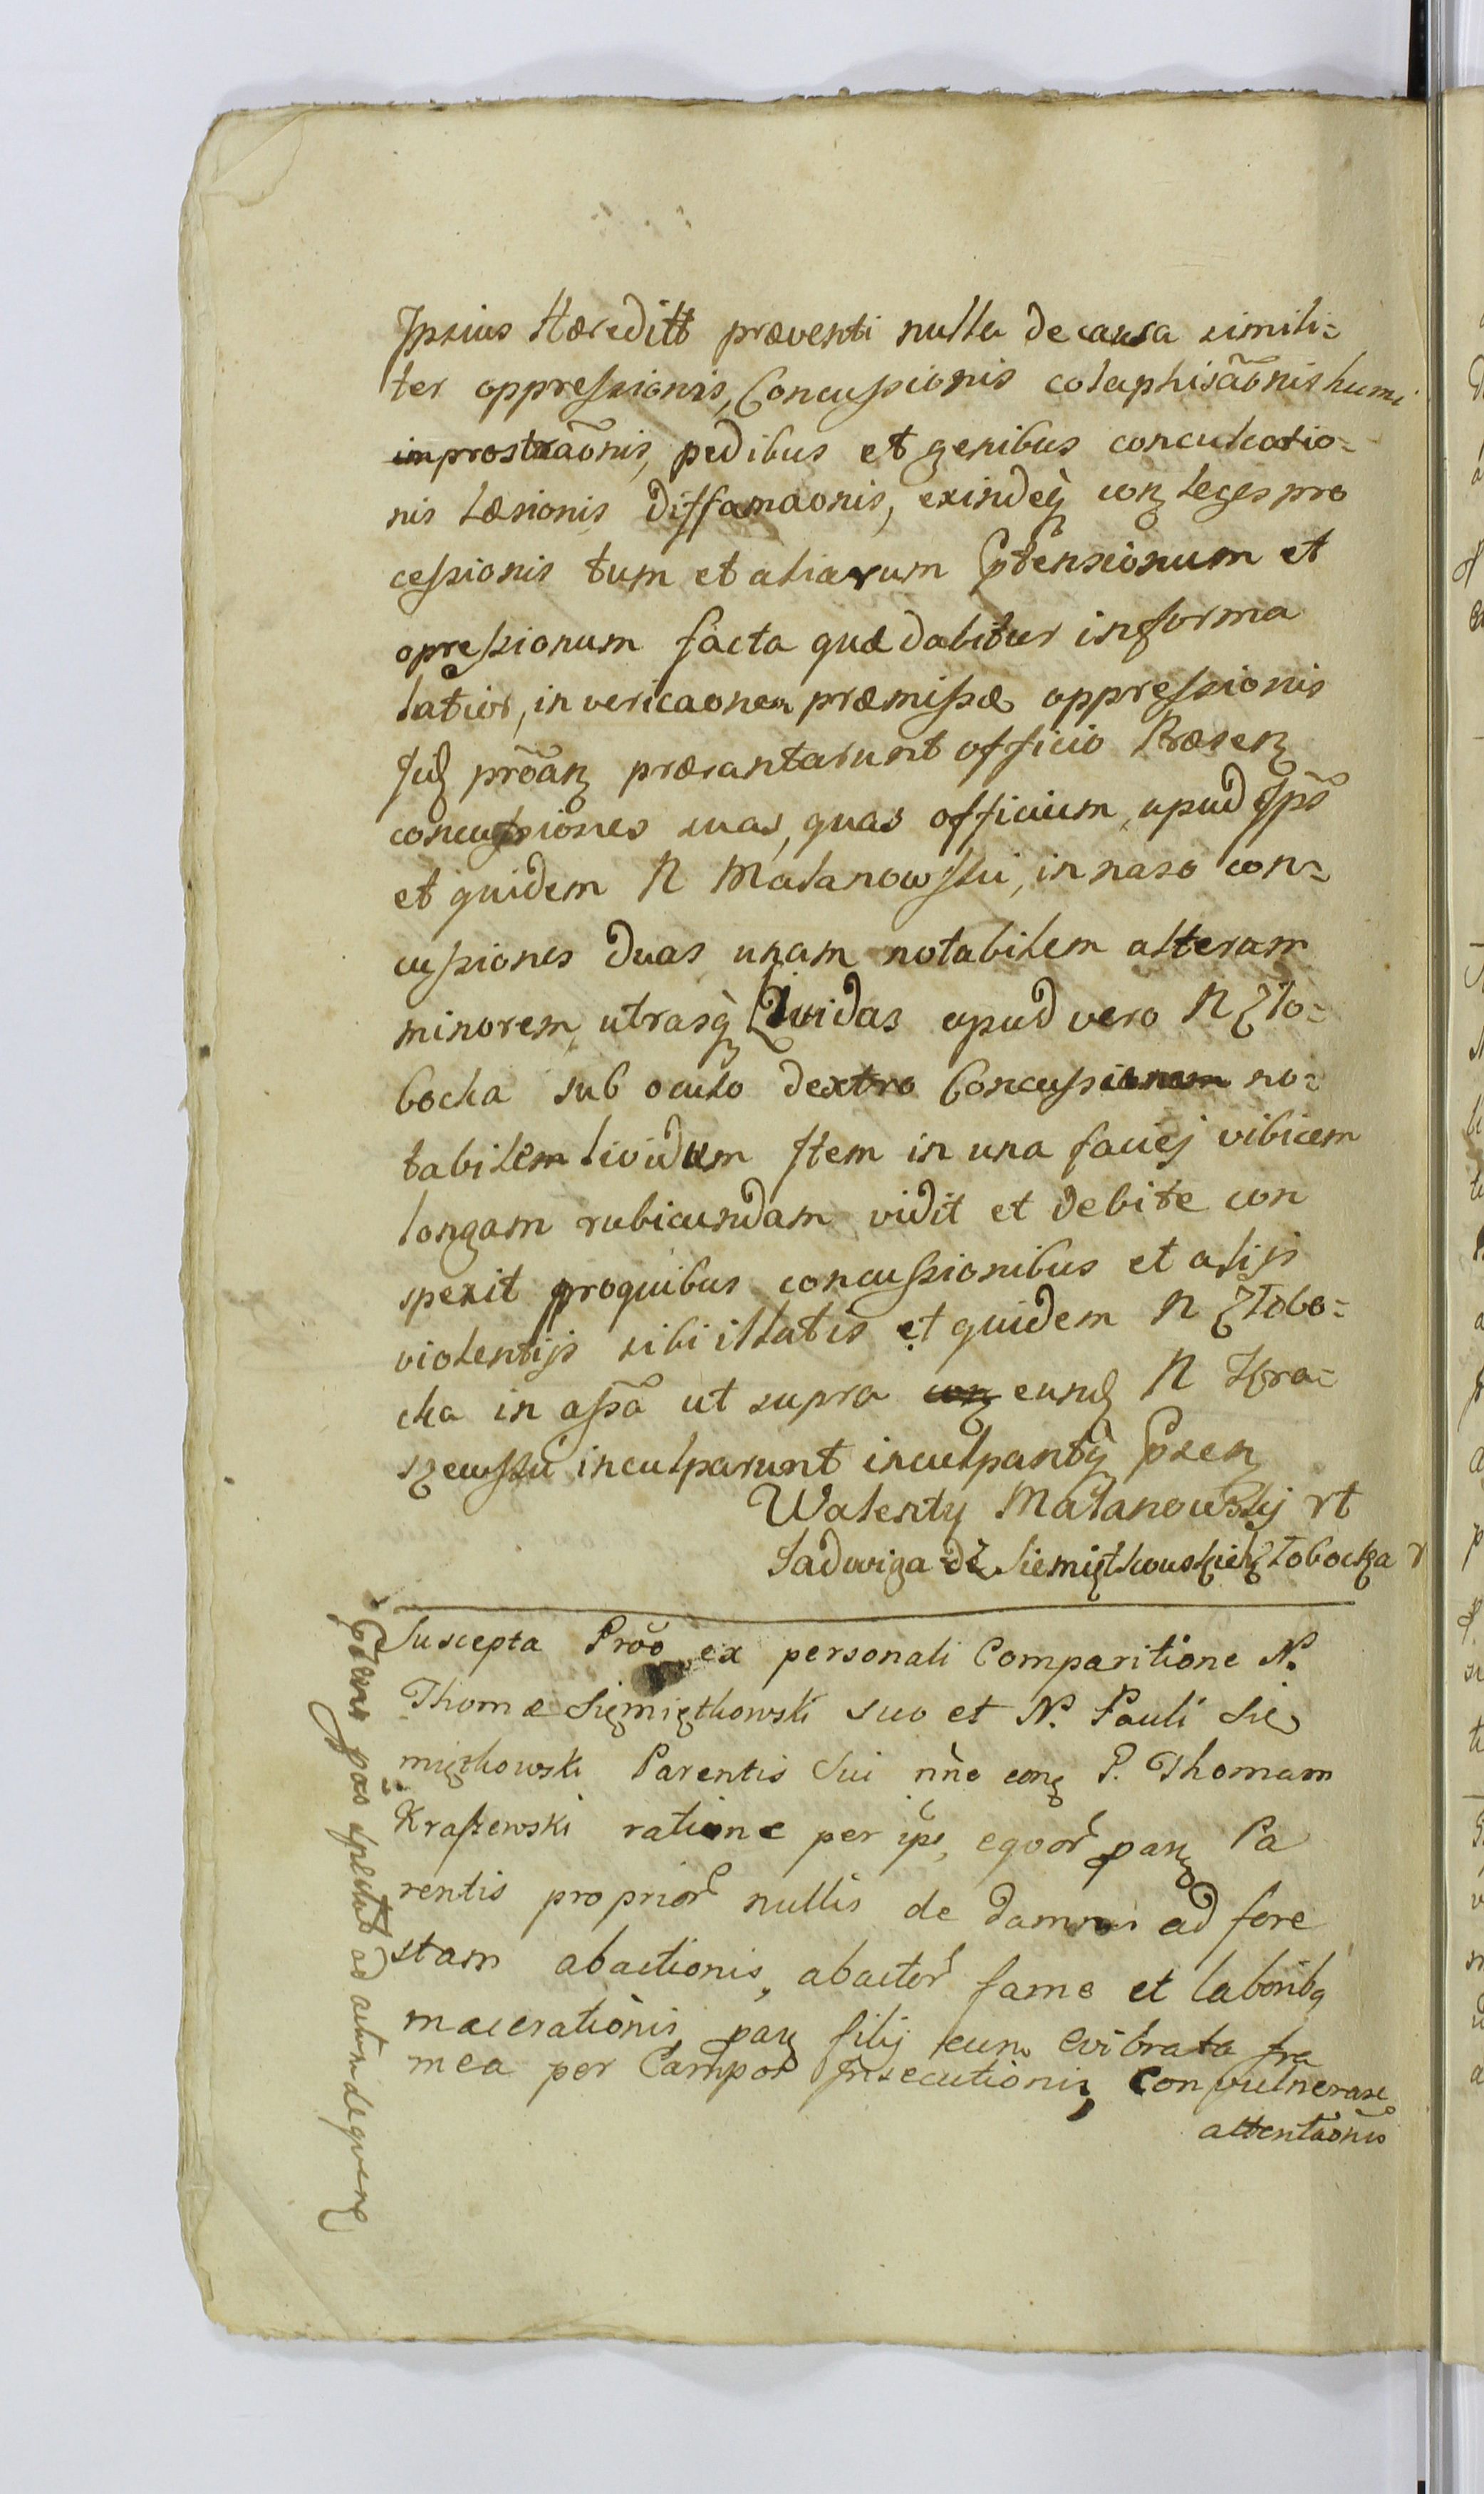 Ipsius Hæreditt præventi nulla de causa simili=
ter oppressionis, Concussionis colaphisãonis humi
improstraõnis, pedibus et genibus conculcatio=
nis læsionis diffamaonis, exindeq conz leges pro
cessionis tum et aliarum Ptensionum et
opressionum facta quæ dabitur in forma
latior, in vericaonem præmissæ oppressionis
præsantarunt officio Præsenz
concussiones suas, quas officium, apud Ips
et quidem N Malanowski, in naso con=
cussiones duas unam notabilem alteram
minorem, utrasq Lividas apud vero N Zło=
bocka sub oculo dextro Concussionem no=
tabilem lividam Item in una faciej vibicem
longam rubicundam vidit et debite con
spexit pro quibus concussionibus et alijs
violentijs sibi illatis et quidem N Złobo=
cka in assa ut supra conz eund N Kra=
szewski inculparunt inculpantq Psenz
Walenty Małanowskij rt
Jadwiga de Siemiętkowskich Złobocka r
Suscepta Proo ex personali Comparitione N.
Thomæ Siemiętkowski suo et N. Pauli Sie
miętkowski Parentis Sui nne conz P. Thomam
Kraszewski ratione per ips, equor paris Pa
rentis proprior nullis de damnis ad fore
stam abactionis, abactor fame et laboribq
macerationis, paris filij cum evibrata fra
mea per Campos Psecutionis, Convulnerare
attentaonis
spectat ad actum sequens